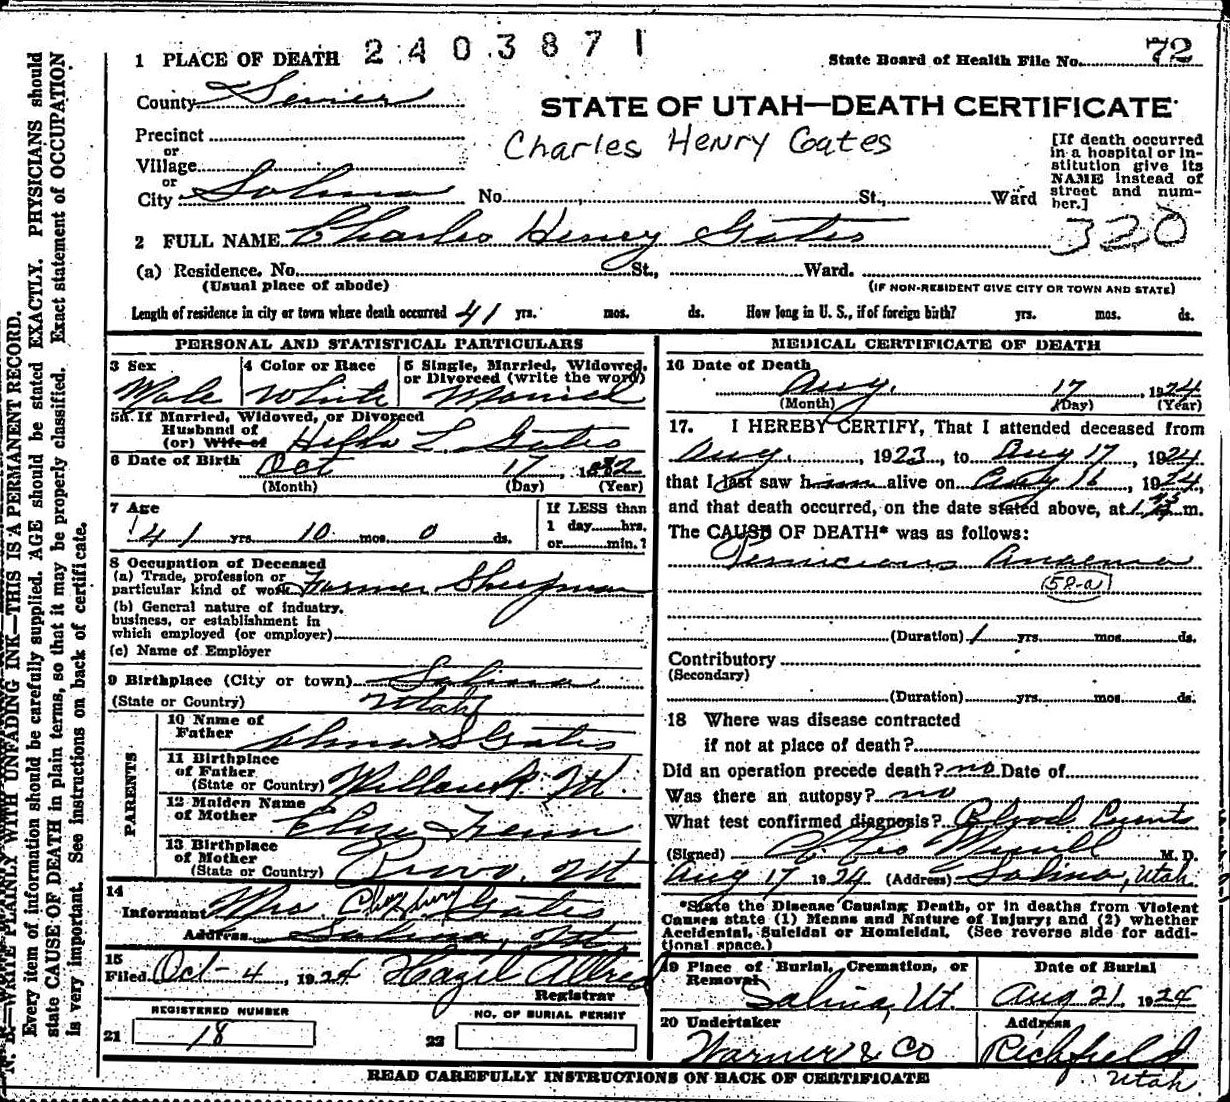 2403871
1 PLACE OF DEATH
State Board of Health File No. 72
County Sevier
STATE OF UTAH—DEATH CERTIFICATE
Charles Henry Gates
Precinct
or
Village
or
City Salina
No. , St., Ward
[If death occurred
in a hospital or in-
stitution give its
NAME instead of
street and num-
ber.]
320
2 FULL NAME Charles Henry Gates
(a) Residence. No. St., Ward.
(Usual place of abode)
(IF NON-RESIDENT GIVE CITY OR TOWN AND STATE)
Length of residence in city or town where death occurred 41 yrs. mos. ds. How long in U. S., if of foreign birth? yrs. mos. ds.
PERSONAL AND STATISTICAL PARTICULARS
3 Sex
Male
4 Color or Race
White
5 Single, Married, Widowed,
or Divorced (write the word)
Married
5A If Married, Widowed, or Divorced
Husband of
(or) Wife of L. Gates
6 Date of Birth Oct 17, 1882
(Month) (Day) (Year)
7 Age
41 yrs. 10 mos. 0 ds.
If LESS than
1 day hrs.
or min.?
8 Occupation of Deceased
(a) Trade, profession or
particular kind of work Farmer Sheepman
(b) General nature of industry,
business, or establishment in
which employed (or employer)
(c) Name of Employer
9 Birthplace (City or town) Salina
(State or Country) Utah
PARENTS
10 Name of
Father S Gates
11 Birthplace
of Father
(State or Country) Willard, Ut.
12 Maiden Name
of Mother
13 Birthplace
of Mother
(State or Country) Provo, Ut
14
Informant Mrs Chas Henry Gates
Address Salina, Ut
15
Filed Oct-4, 1924 Hazil Allred
Registrar
REGISTERED NUMBER
21 18
NO. OF BURIAL PERMIT
22
MEDICAL CERTIFICATE OF DEATH
16 Date of Death
Aug. 17, 1924
(Month) (Day) (Year)
17. I HEREBY CERTIFY, That I attended deceased from
Aug., 1923, to Aug 17, 1924
that I last saw him alive on Aug 16, 1924,
and that death occurred, on the date stated above, at m.
The CAUSE OF DEATH* was as follows:
Pernicious Anaemia
(58-a)
(Duration) 1 yrs. mos. ds.
Contributory
(Secondary)
(Duration) yrs. mos. ds.
18 Where was disease contracted
if not at place of death?
Did an operation precede death? no Date of
Was there an autopsy? no
What test confirmed diagnosis? Blood Counts
(Signed) M. D.
Aug 17 1924 (Address) Salina, Utah
*State the Disease Causing Death, or in deaths from Violent
Causes state (1) Means and Nature of Injury; and (2) whether
Accidental, Suicidal or Homicidal. (See reverse side for addi-
tional space.)
19 Place of Burial, Cremation, or
Removal
Salina, Ut.
Date of Burial
Aug 21, 1924
20 Undertaker
Warner & Co
Address
Richfield
Utah
READ CAREFULLY INSTRUCTIONS ON BACK OF CERTIFICATE
N. B.—WRITE PLAINLY WITH UNFADING INK—THIS IS A PERMANENT RECORD.
Every item of information should be carefully supplied. AGE should be stated EXACTLY. PHYSICIANS should
state CAUSE OF DEATH in plain terms, so that it may be properly classified. Exact statement of OCCUPATION
is very important. See instructions on back of certificate.